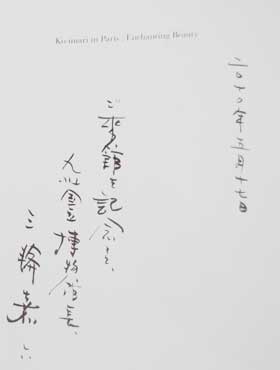 Ko-imari in Paris : Enchanting Beauty
二〇一〇年五月十七日
ご来館を記念して、
九州国立博物館長、
三輪嘉六